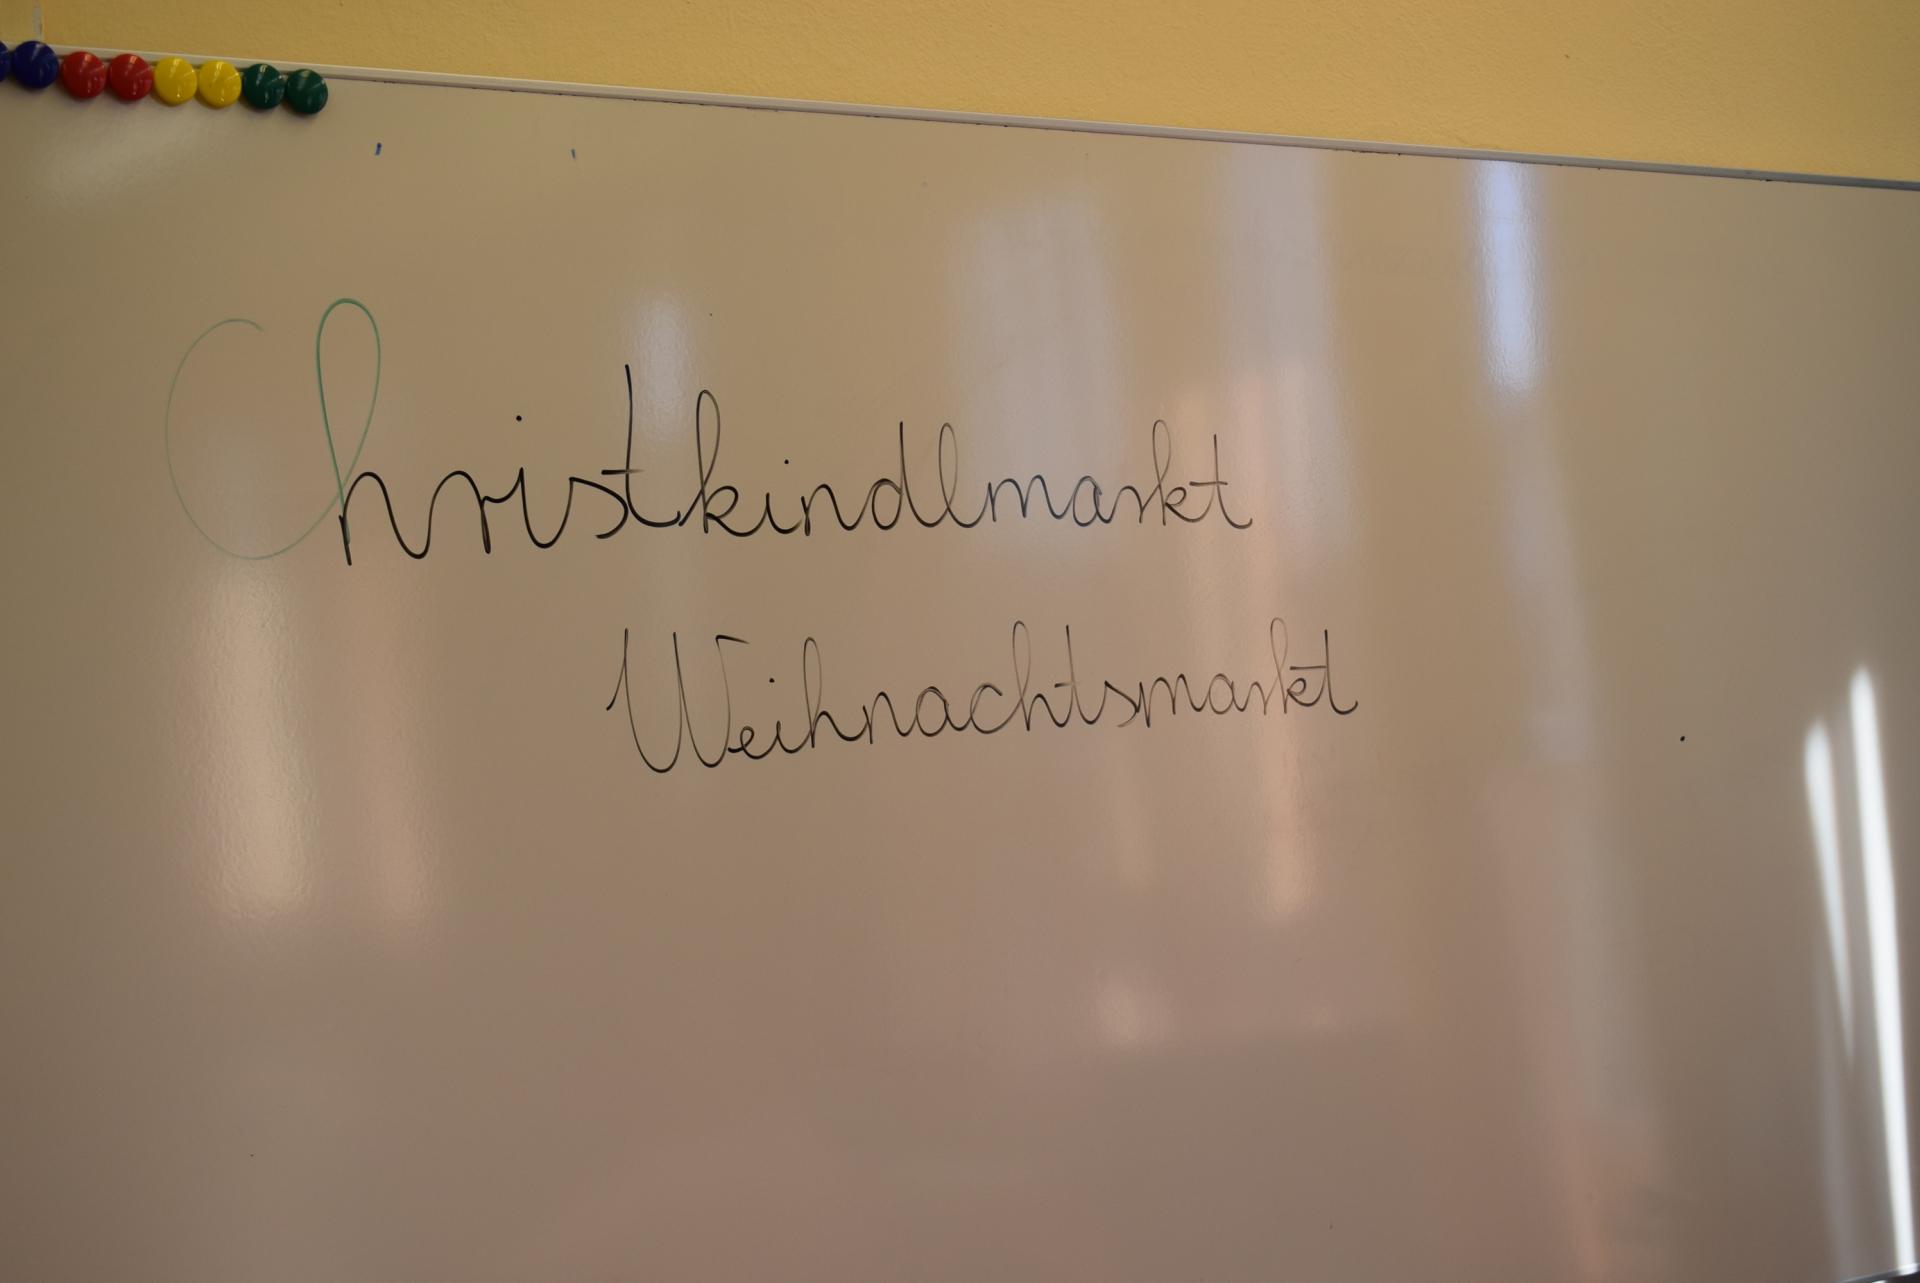 Christkindlmarkt
Weihnachtsmarkt